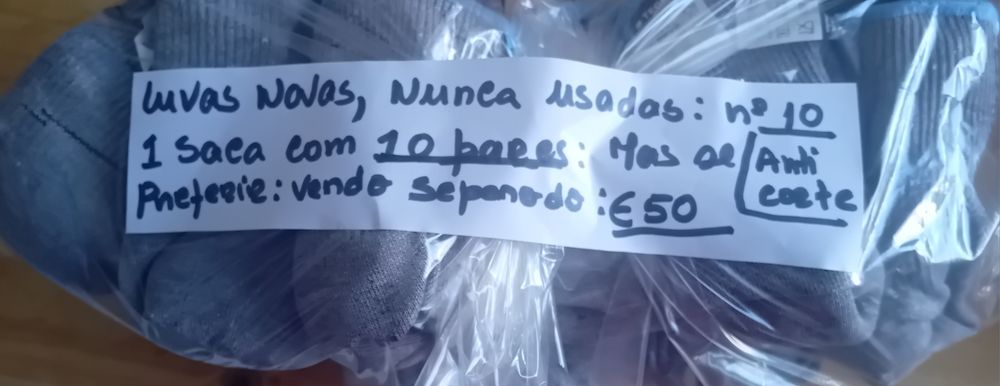 Luvas Novas, Nunca usadas: nº 10
1 Saca com 10 pares: Mas se
Preferir: vendo separado: €50
Anti
corte